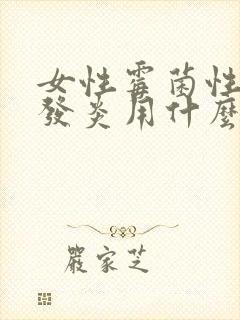 女性霉菌性
發炎用什麼
嚴家芝